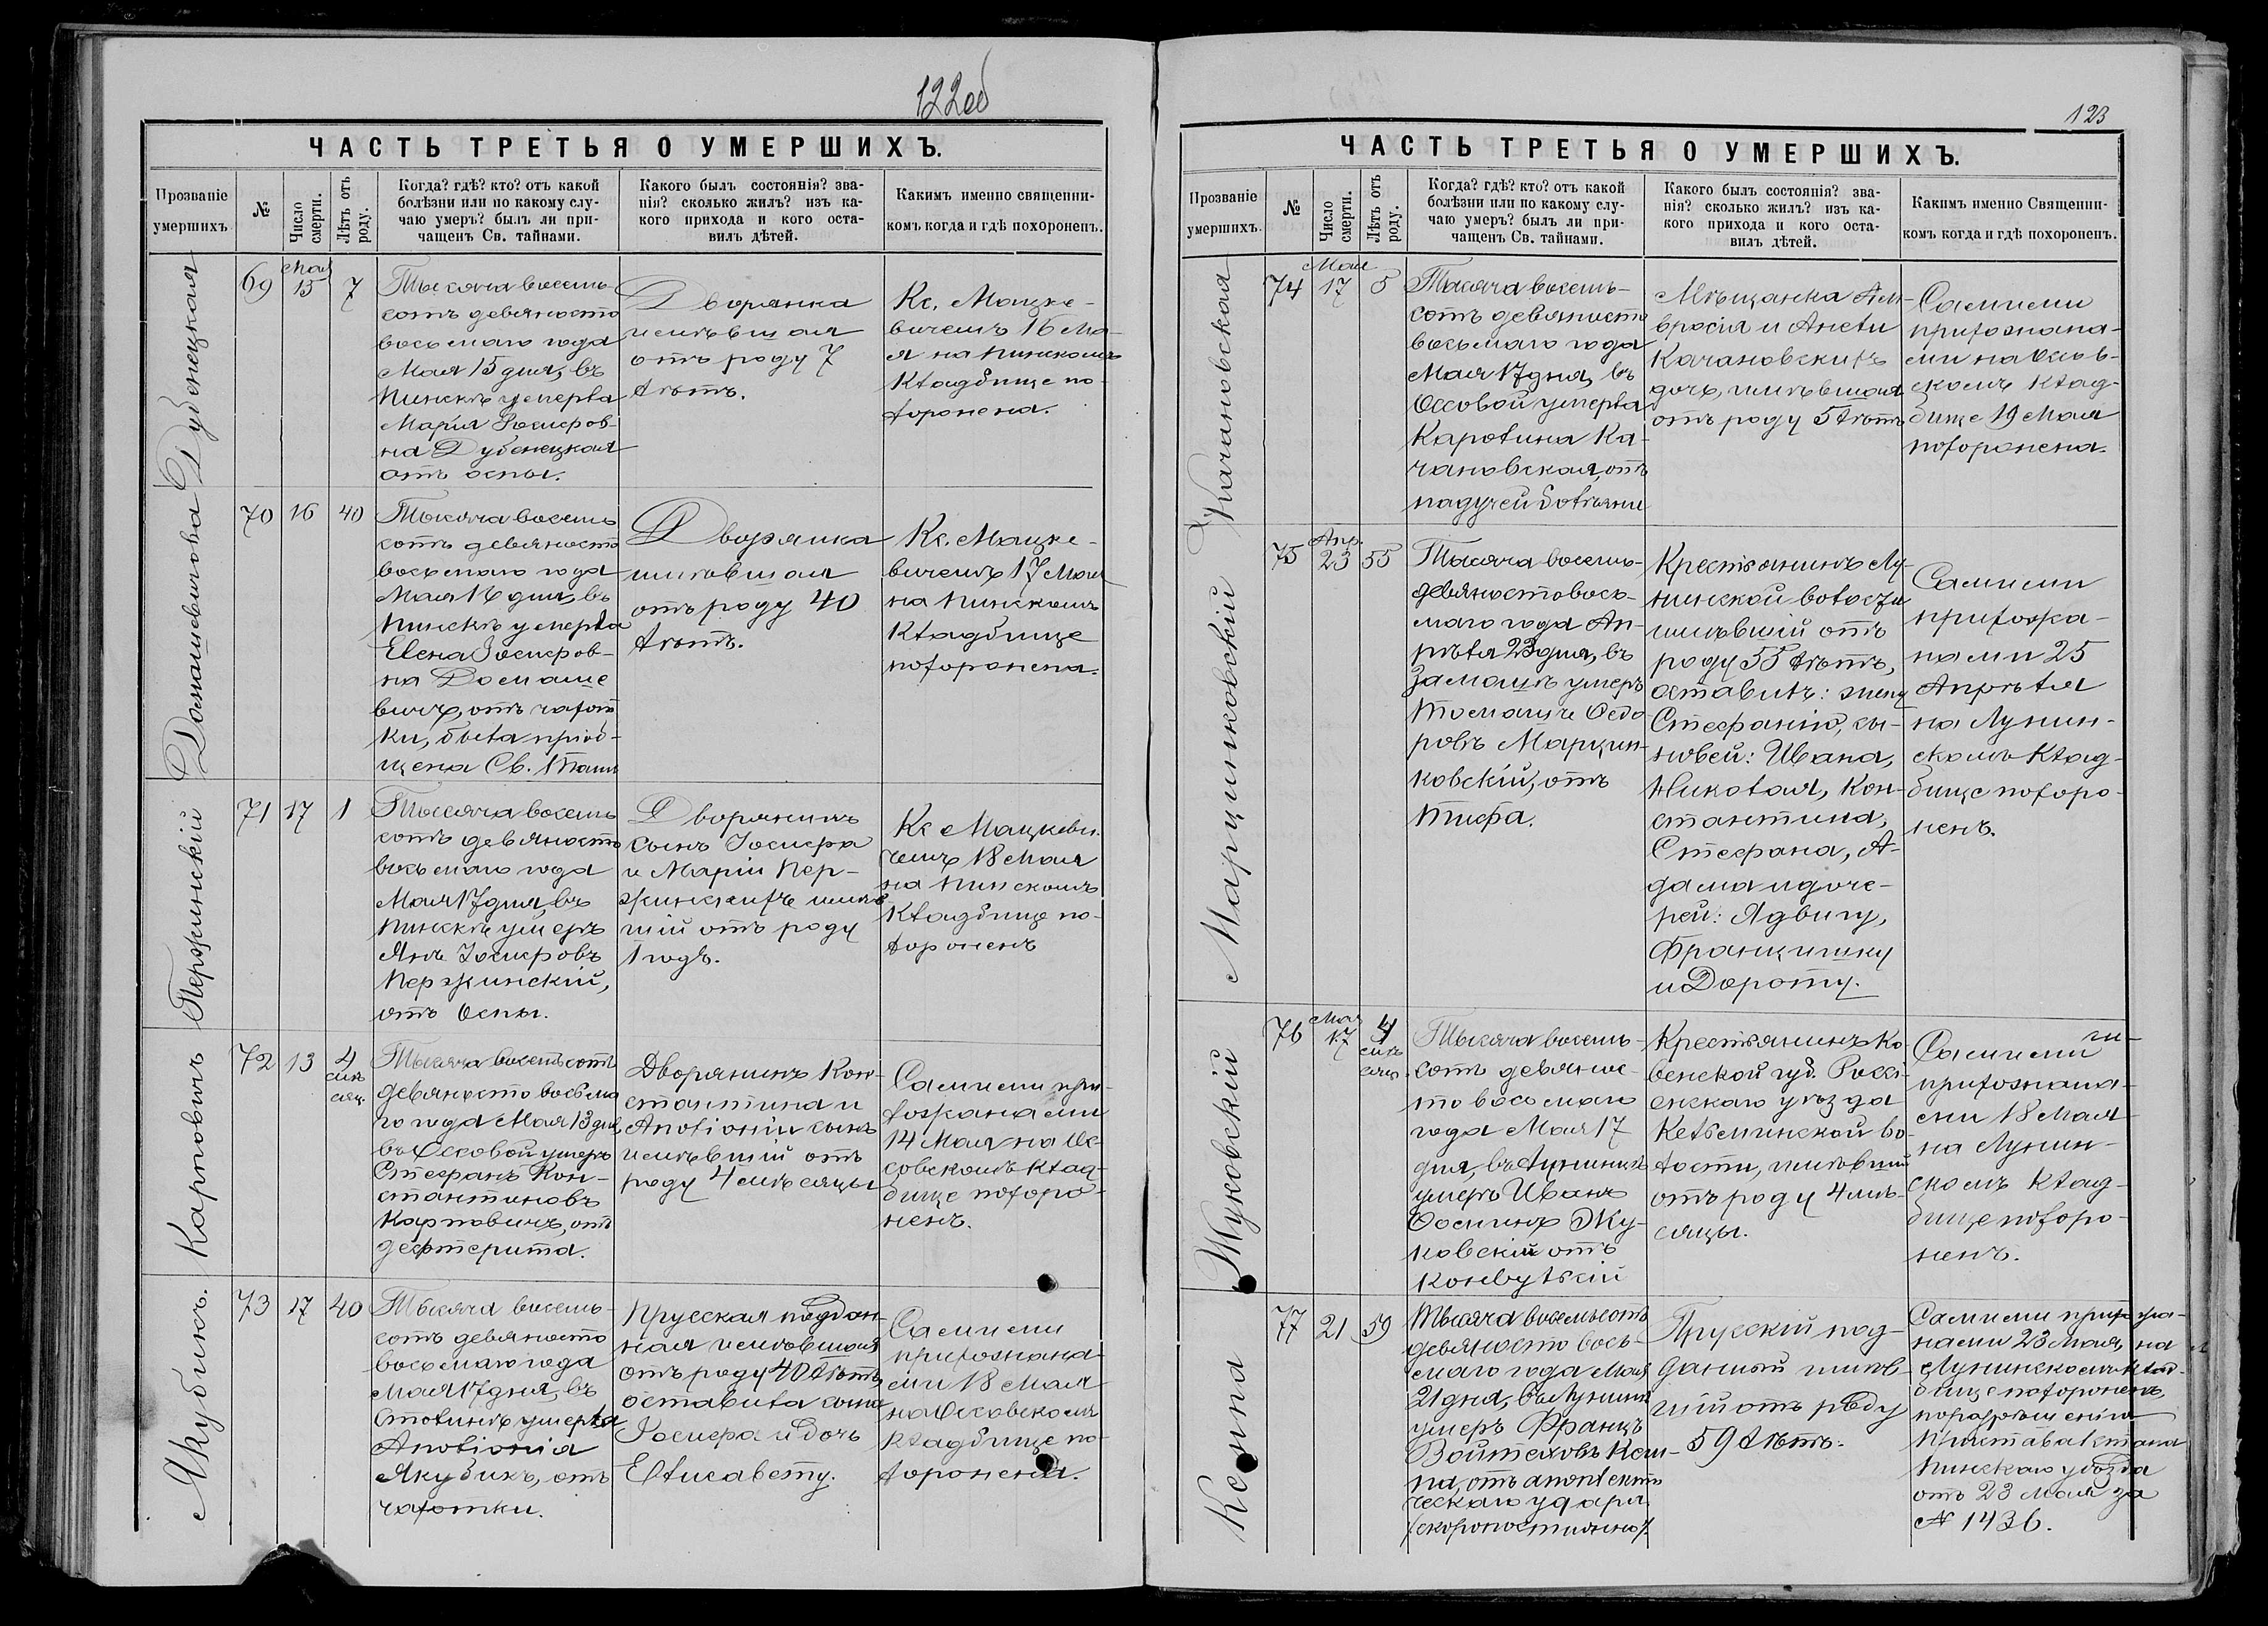 122об
ЧАСТЬ ТРЕТЬЯ О УМЕРШИХЪ.
Прозваніе умершихъ
№
Число смерти.
Лѣтъ отъ роду.
Когда? гдѣ? кто? отъ какой
болѣзни или по какому слу-
чаю умеръ? былъ ли при-
чащенъ Св. тайнами.
Какого былъ состоянія? зва-
нія? сколько жилъ? изъ ка-
кого прихода и кого оста-
вилъ дѣтей.
Какимъ именно священни-
комъ когда и гдѣ похороненъ.
Дубенецкая
69
Мая
15
7
Тысяча восемь-
сотъ девяносто
восьмаго года
Мая 15 дня, въ
Пинскѣ умерла
Марія Іосифов-
на Дубенецкая
отъ оспы.
Дворянка
имѣвшая
отъ роду 7
лѣтъ.
Кс. Мацке-
вичемъ 16 Ма-
я на Пинскомъ
кладбище по-
хоронена.
Домашевичова
70
16
40
Тысяча восемь
сотъ девяносто
восьмаго года
Мая 16 дня, въ
Пинскѣ умерла
Елена Іосифов-
на Домаше
вичъ, отъ чахот
ки, была приоб-
щена Св. Таин
Дворянка
имѣвшая
отъ роду 40
лѣтъ.
Кс. Мацке-
вичемъ 17 Мая
на Пинскомъ
кладбище
похоронена.
Пержинскій
71
17
1
Тысяча восемь
сотъ девяносто
восьмаго года
Мая 17 дня, въ
Пинскѣ умеръ
Янъ Іосифовъ
Пержинскій,
отъ оспы.
Дворянинъ
сынъ Іосифа
и Маріи Пер-
жинскихъ имѣв
шій отъ роду
1 годъ.
Кс Мацкеви-
чемъ 18 Мая
на Пинскомъ
кладбище по-
хороненъ
Карповичъ
72
13
4
мѣ
сяц.
Тысяча восемьсотъ
девяносто восьма
го года Мая 13 дня,
въ Оссовой умеръ
Стефанъ Кон-
стантиновъ
Карповичъ, отъ
дефтерита.
Дворянинъ Кон-
стантина и
Аполіоніи сынъ
имѣвшій отъ
роду 4 мѣсяцы
Самими при-
хожанами
14 Мая на Ос-
совскомъ клад-
бище похоро-
ненъ.
Якубикъ.
73
17
40
Тысяча восемь-
сотъ девяносто
восьмаго года
Мая 17 дня, въ
Столинѣ умерла
Аполіонія
Якубикъ, отъ
чахотки.
Прусская поддан-
ная имѣвшая
отъ роду 40 лѣтъ,
оставила сына
Іосифа и дочь
Елисавету.
Самими
прихожана-
ми 18 Мая
на Оссовскомъ
кладбище по-
хоронена.
123
ЧАСТЬ ТРЕТЬЯ О УМЕРШИХЪ.
Прозваніе умершихъ.
№
Число смерти.
Лѣтъ отъ роду.
Когда? гдѣ? кто? отъ какой
болѣзни или по какому слу-
чаю умеръ? былъ ли при-
чащенъ Св. тайнами.
Какого былъ состоянія? зва-
нія? сколько жилъ? изъ ка-
кого прихода и кого оста-
вилъ дѣтей.
Какимъ именно Священни-
комъ когда и гдѣ похороненъ.
Качановская
74
Мая
17
5
Тысяча восемь-
сотъ девяносто
восьмаго года
Мая 17 дня, въ
Оссовой умерла
Каролина Ка-
чановская, отъ
падучей болѣзни
Мѣщанка Ам-
вросія и Анели
Качановскихъ
дочь, имѣвшая
отъ роду 5 лѣтъ
Самими
прихожана-
ми на Оссов-
скомъ клад-
бище 19 Мая
похоронена.
Марцинковскій
75
Апр.
23
55
Тысяча восемь-
девяносто вось-
маго года Ап-
рѣля 23 дня, въ
Замошѣ умеръ
Томашъ Федо-
ровъ Марцин-
ковскій, отъ
тифа.
Крестьянинъ Лу-
нинской волости
имѣвшій отъ
роду 55 лѣтъ,
оставилъ: жену
Стефанію, сы-
новей: Ивана,
Николая, Кон-
стантина,
Стефана, А-
дама и доче-
рей: Ядвигу,
Францишку
и Дороту.
Самими
прихожа-
нами 25
Апрѣля
на Лунин-
скомъ клад-
бище похоро-
ненъ.
Жуковскій
76
Мая
17
4
мѣ
сяц.
Тысяча восемь-
сотъ девянос-
то восьмаго
года Мая 17
дня, въ Лунинѣ
умеръ Иванъ
Фоминъ Жу-
ковскій отъ
конвульсій
Крестьянинъ Ко-
венской губ. Россі-
енскаго уѣзда
Кельминской во-
лости, имѣвшій
отъ роду 4 мѣ-
сяцы.
Самими
прихожана-
ми 18 Мая
на Лунин-
скомъ клад-
бище похоро-
ненъ.
Кемпа
77
21
59
Тысяча восемьсотъ
девяносто вось-
маго года Мая
21 дня, въ Лунинѣ
умеръ Францъ
Войтеховъ Кем-
па, отъ апоплекти
ческаго удара
/скоропостижно/.
Прусскій под-
данный имѣв-
шій отъ роду
59 лѣтъ.
Самими прихожа-
нами 23 Мая, на
Лунинскомъ клад-
бище похороненъ,
по разрѣшенію
Пристава 1 стана
Пинскаго уѣзда
отъ 23 Мая за
№ 1436.